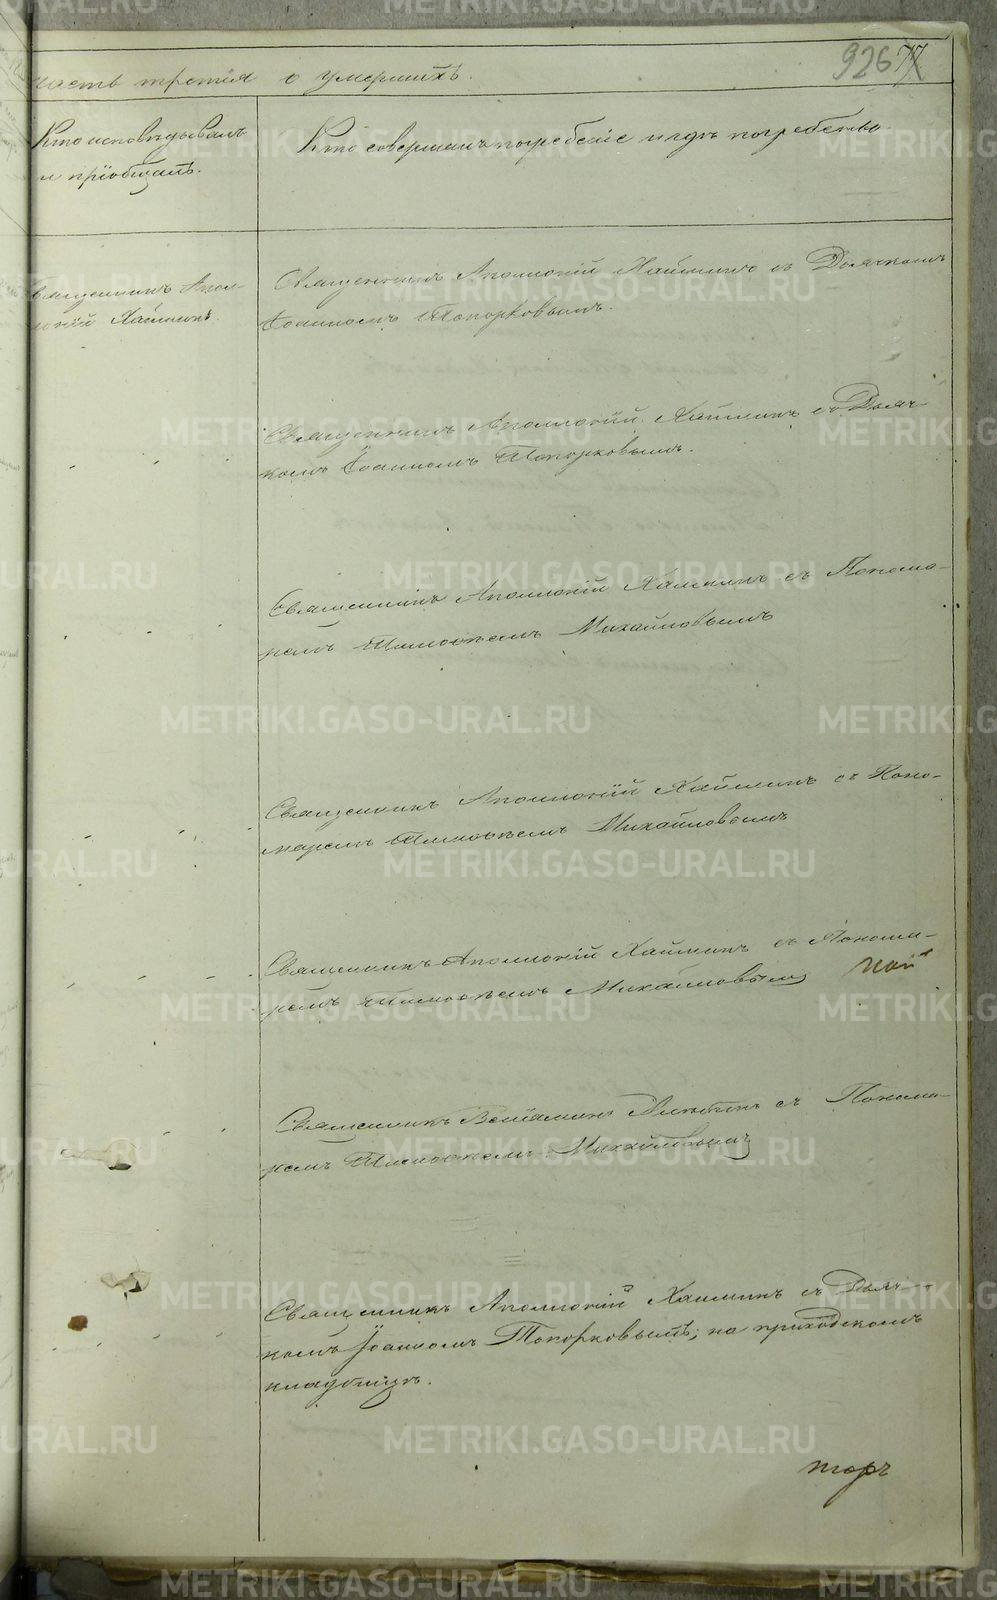 926 77
часть третія о умершихъ.
Кто исповѣдывалъ
и пріобщалъ.
Кто совершалъ погребеніе и гдѣ погребены
Священникъ Апол-
лоній Хаймин.
Священникъ Аполлоній Хайминъ съ Дьячкомъ
Іоанномъ Топорковымъ.
Священникъ Аполлоній Хайминъ съ Дьяч-
комъ Іоанномъ Топорковымъ.
Священникъ Аполлоній Хайминъ съ Понома-
ремъ Тимоѳеемъ Михайловымъ
Священникъ Аполлоній Хайминъ съ Поно-
маремъ Тимоѳеемъ Михайловымъ
Священникъ Аполлоній Хайминъ съ Понома-
ремъ Тимоѳеемъ Михайловымъ
Священникъ Веніаминъ съ Понома-
ремъ Тимоѳеемъ Михайловымъ
Священникъ Аполлоній Хайминъ съ Дьяч-
комъ Іоанномъ Топорковымъ; на приходскомъ
кладбищѣ.
METRIKI.GASO-URAL.RU